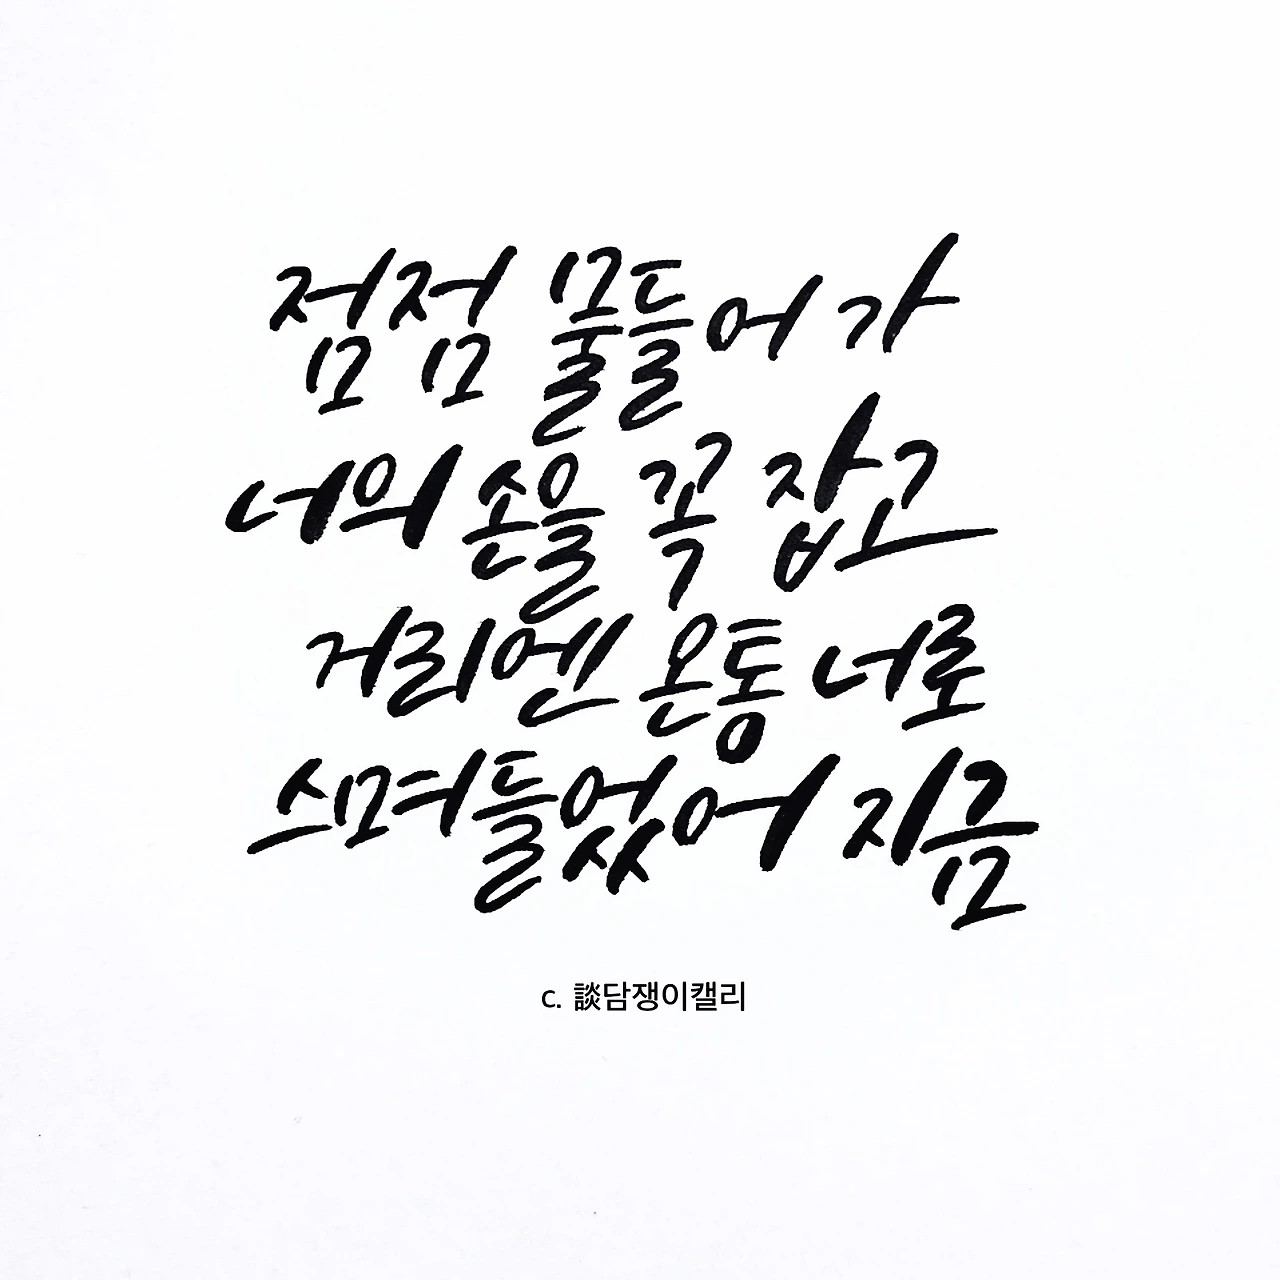 점점 물들어 가
너의 손을 꼭 잡고
거리엔 온통 너로
스며들었어 지금
c. 談담쟁이캘리